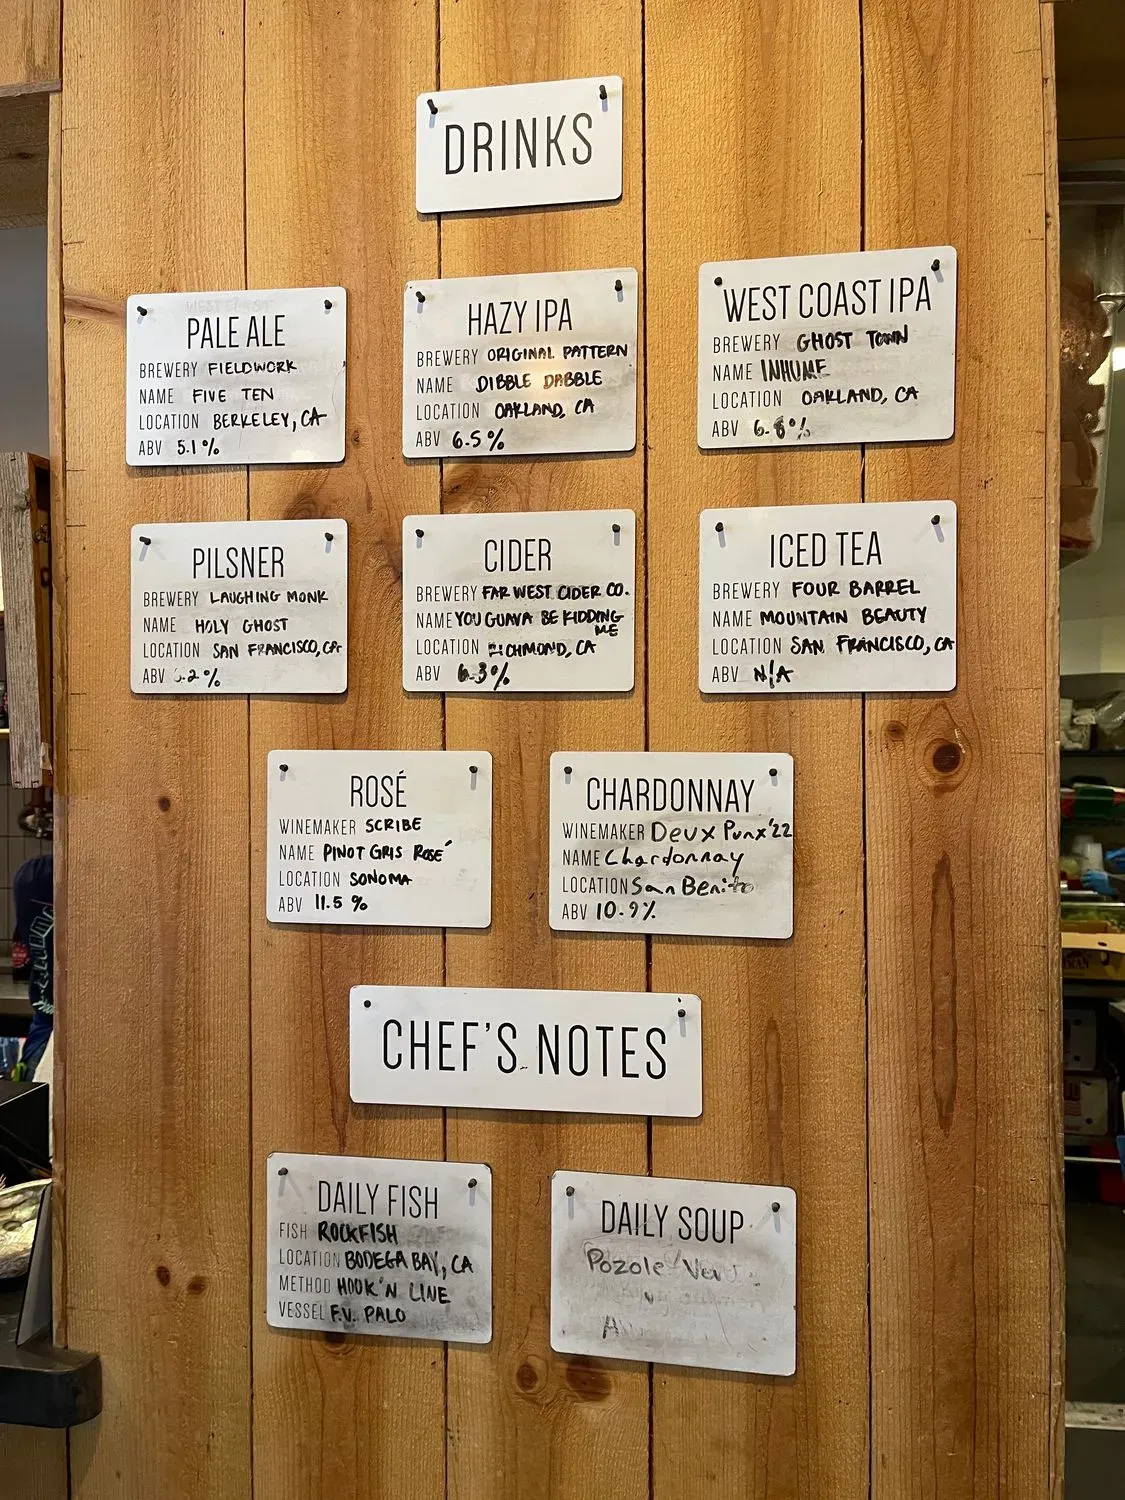 DRINKS
WEST COAST
PALE ALE
BREWERY FIELDWORK
NAME FIVE TEN
LOCATION BERKELEY, CA
ABV 5.1%
HAZY IPA
BREWERY ORIGINAL PATTERN
NAME DIBBLE DABBLE
LOCATION OAKLAND, CA
ABV 6.5%
WEST COAST IPA
BREWERY GHOST TOWN
NAME INHUME
LOCATION OAKLAND, CA
ABV 6.8%
PILSNER
BREWERY LAUGHING MONK
NAME HOLY GHOST
LOCATION SAN FRANCISCO, CA
ABV
CIDER
BREWERY FAR WEST CIDER CO.
NAME YOU GUAVA BE KIDDING
ME
LOCATION RICHMOND, CA
ABV 6.3%
ICED TEA
BREWERY FOUR BARREL
NAME MOUNTAIN BEAUTY
LOCATION SAN FRANCISCO, CA
ABV N/A
ROSÉ
WINEMAKER SCRIBE
NAME PINOT GRIS ROSÉ
LOCATION SONOMA
ABV 11.5%
CHARDONNAY
WINEMAKER Deux Punx '22
NAME Chardonnay
LOCATION San Benito
ABV 10.9%
CHEF'S NOTES
DAILY FISH
FISH ROCKFISH
LOCATION BODEGA BAY, CA
METHOD HOOK 'N LINE
VESSEL F.V. PALO
DAILY SOUP
Pozole